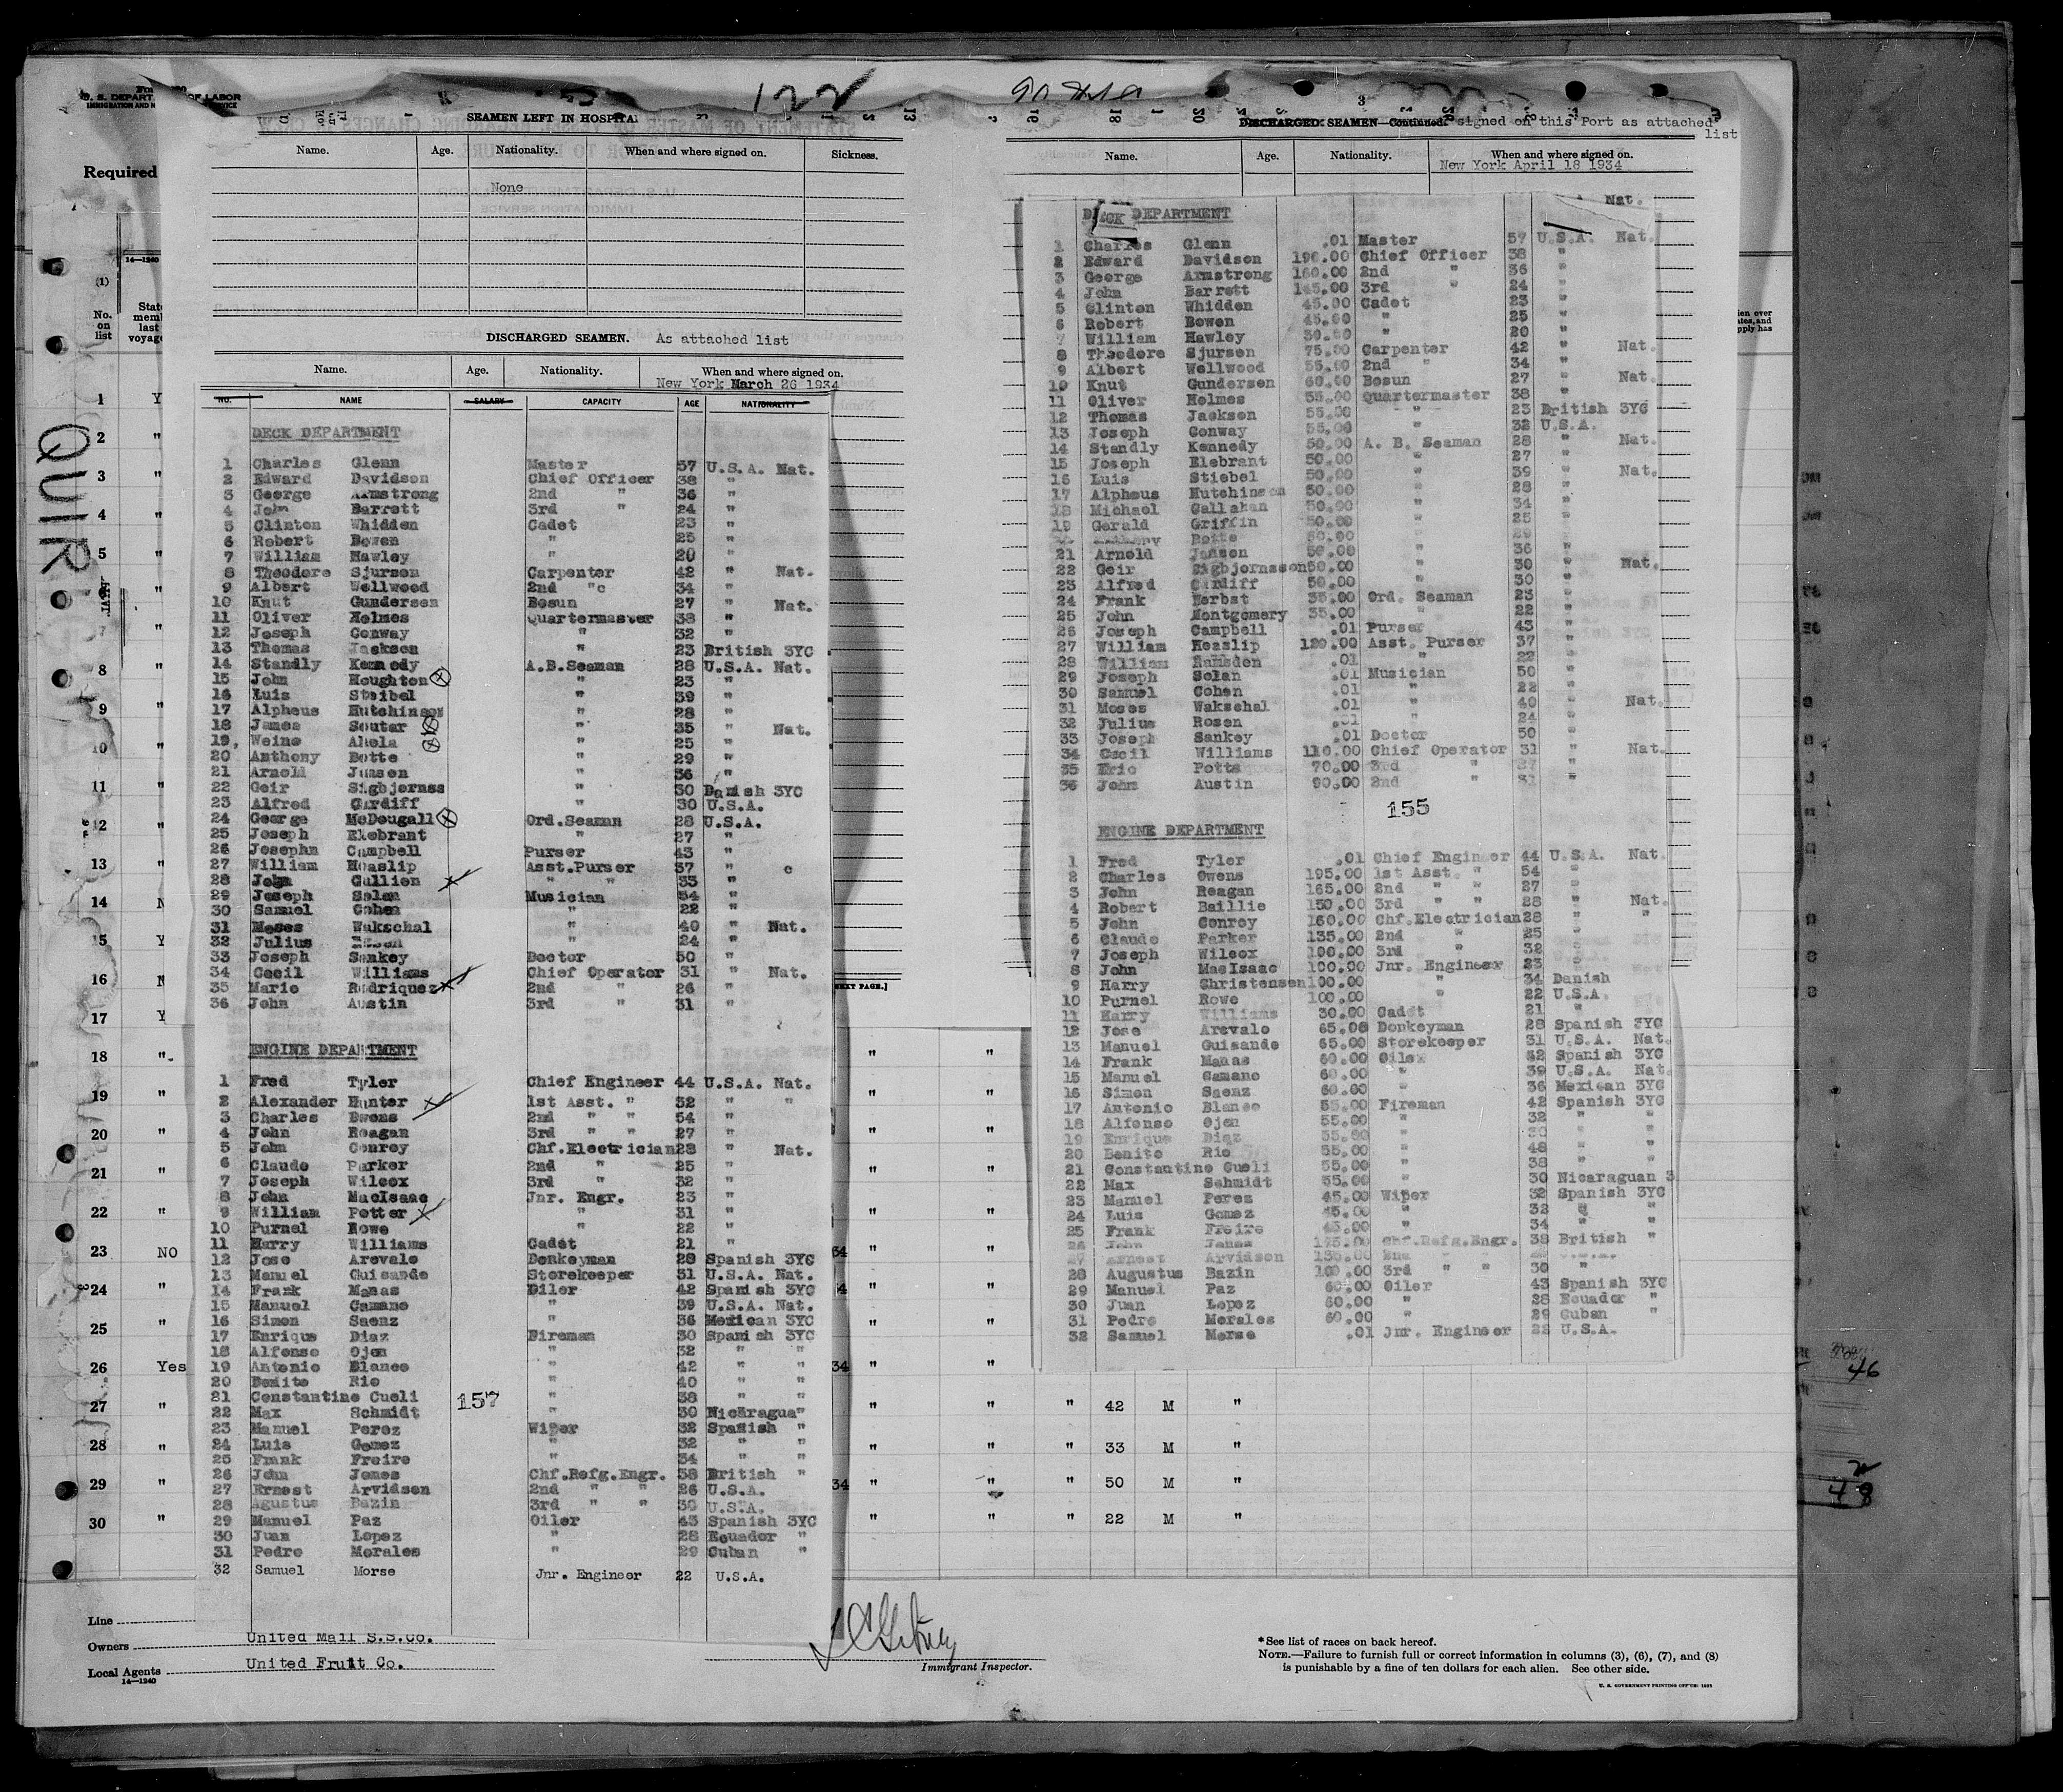 U. S. DEPARTMENT OF LABOR
122
SEAMEN LEFT IN HOSPITAL
Name. Age. Nationality. When and where signed on. Sickness.
None
DISCHARGED SEAMEN. As attached list
Name. Age. Nationality. When and where signed on.
New York March 26 1934
NO. NAME SALARY CAPACITY AGE NATIONALITY
DECK DEPARTMENT
1 Charles Glenn Master 57 U.S.A. Nat.
2 Edward Davidson Chief Officer 38 "
3 George Armstrong 2nd " 36 "
4 John Barrett 3rd " 24 "
5 Clinton Whidden Cadet 23 "
6 Robert Bowen " 25 "
7 William Hawley " 20 "
8 Theodore Sjursen Carpenter 42 " Nat.
9 Albert Wellwood 2nd "c 34 "
10 Knut Gundersen Bosun 27 " Nat.
11 Oliver Holmes Quartermaster 38 "
12 Joseph Conway " 32 "
13 Thomas Jackson " 23 British 3YC
14 Standly Kennedy A.B.Seaman 28 U.S.A. Nat.
15 John Houghton " 23 "
16 Luis Steibel " 39 "
17 Alpheus Hutchinson " 28 "
18 James Soutar " 35 " Nat.
19, Weino Ahola " 25 "
20 Anthony Botte " 29 "
21 Arnold Jansen " 36 "
22 Geir Sigbjornss " 30 Danish 3YC
23 Alfred Cardiff " 30 U.S.A.
24 George McDougall Ord.Seaman 28 U.S.A.
25 Joseph Elebrant " 27 "
26 Josephn Campbell Purser 43 "
27 William Heaslip Asst.Purser 37 " c
28 John Cullien " " 33 "
29 Joseph Solan Musician 54 "
30 Samuel Cohen " 22 "
31 Moses Wakschal " 40 " Nat.
32 Julius Rosen " 24 "
33 Joseph Sankey Doctor 50 "
34 Cecil Williams Chief Operator 31 " Nat.
35 Mario Rodriquez 2nd " 26 "
36 John Austin 3rd " 31 "
ENGINE DEPARTMENT
1 Fred Tyler Chief Engineer 44 U.S.A. Nat.
2 Alexander Hunter 1st Asst. " 32 " "
3 Charles Owens 2nd " " 54 "
4 John Reagan 3rd " " 27 "
5 John Conroy Chf.Electrician 28 " Nat.
6 Claude Parker 2nd " 25 "
7 Joseph Wilcox 3rd " 32 "
8 John MacIsaac Jnr. Engr. 23 "
9 William Potter " 31 "
10 Purnel Rowe " 22 "
11 Harry Williams Cadet 21 "
12 Jose Arevalo Donkeyman 28 Spanish 3YC
13 Manuel Guisande Storekeeper 31 U.S.A. Nat.
14 Frank Manas Oiler 42 Spanish 3YC
15 Manuel Camano " 39 U.S.A. Nat.
16 Simon Saenz " 36 Mexican 3YC
17 Enrique Diaz Fireman 30 Spanish 3YC
18 Alfonso Ojen " 32 " "
19 Antonio Blanco " 42 " "
20 Benito Rio " 40 " "
21 Constantine Cueli 157 " 38 " "
22 Max Schmidt " 30 Nicaragua"
23 Manuel Perez Wiper 32 Spanish "
24 Luis Gomez " 32 " "
25 Frank Freire " 34 " "
26 John Jones Chf.Refg.Engr. 38 British "
27 Ernest Arvidson 2nd " " 26 U.S.A.
28 Agustus Bazin 3rd " " 30 U.S.A.
29 Manuel Paz Oiler 43 Spanish 3YC
30 Juan Lopez " 28 Ecuador "
31 Pedro Morales " 29 Cuban "
32 Samuel Morse Jnr. Engineer 22 U.S.A.
3
DISCHARGED SEAMEN—Continued. signed on this Port as attached list
Name. Age. Nationality. When and where signed on.
New York April 18 1934
Nat.
DECK DEPARTMENT
1 Charles Glenn .01 Master 57 U.S.A. Nat.
2 Edward Davidson 190.00 Chief Officer 38 "
3 George Armstrong 160.00 2nd " 36 "
4 John Barrett 145.00 3rd " 24 "
5 Clinton Whidden 45.00 Cadet 23 "
6 Robert Bowen 45.00 " 25 "
7 William Hawley 30.00 " 20 "
8 Theodore Sjursen 75.00 Carpenter 42 " Nat.
9 Albert Wellwood 55.00 2nd " 34 "
10 Knut Gundersen 60.00 Bosun 27 " Nat.
11 Oliver Holmes 55.00 Quartermaster 38 "
12 Thomas Jackson 55.00 " 23 British 3YC
13 Joseph Conway 55.00 " 32 U.S.A.
14 Standly Kennedy 50.00 A. B. Seaman 28 " Nat.
15 Joseph Elebrant 50.00 " 27 "
16 Luis Stiebel 50.00 " 39 " Nat.
17 Alpheus Hutchinson 50.00 " 28 "
18 Michael Callahan 50.00 " 34 "
19 Gerald Griffin 50.00 " 25 "
Botte 50.00 " 29 "
21 Arnold Jansen 50.00 " 36 "
22 Geir Sigbjornsson 50.00 " 30 " Nat.
23 Alfred Cardiff 50.00 " 30 "
24 Frank Herbst 35.00 Ord. Seaman 23 "
25 John Montgomery 35.00 " 22 "
26 Joseph Campbell .01 Purser 43 "
27 William Heaslip 120.00 Asst. Purser 37 "
28 William Ramsden .01 " 22 "
29 Joseph Solan .01 Musician 50 "
30 Samuel Cohen .01 " 22 "
31 Moses Wakschal .01 " 40 " Nat.
32 Julius Rosen .01 " 24 "
33 Joseph Sankey .01 Doctor 50 "
34 Cecil Williams 110.00 Chief Operator 31 " Nat.
35 Eric Potts 70.00 3rd " "
36 John Austin 90.00 2nd " 31 "
155
ENGINE DEPARTMENT
1 Fred Tyler .01 Chief Engineer 44 U.S.A. Nat.
2 Charles Owens 195.00 1st Asst. " 54 "
3 John Reagan 165.00 2nd " " 27 "
4 Robert Baillie 150.00 3rd " " 28 " Nat.
5 John Conroy 160.00 Chf.Electrician 28 " "
6 Claude Parker 135.00 2nd " 25 "
7 Joseph Wilcox 100.00 3rd " 32 "
8 John MacIsaac 100.00 Jnr. Engineer 23 "
9 Harry Christensen 100.00 " 34 Danish
10 Purnel Rowe 100.00 " 22 U.S.A.
11 Harry Williams 30.00 Cadet 21 "
12 Jose Arevalo 65.00 Donkeyman 28 Spanish 3YC
13 Manuel Guisande 65.00 Storekeeper 31 U.S.A. Nat.
14 Frank Manas 60.00 Oiler 42 Spanish 3YC
15 Manuel Camano 60.00 " 39 U.S.A. Nat.
16 Simon Saenz 60.00 " 36 Mexican 3YC
17 Antonio Blanco 55.00 Fireman 42 Spanish 3YC
18 Alfonso Ojen 55.00 " 32 " "
19 Enrique Diaz 55.00 " 30 " "
20 Benito Rio 55.00 " 48 " "
21 Constantine Cueli 55.00 " 38 " "
22 Max Schmidt 55.00 " 30 Nicaraguan 3
23 Manuel Perez 45.00 Wiper 32 Spanish 3YC
24 Luis Gomez 45.00 " 32 " "
25 Frank Freire 45.00 " 34 " "
26 John Jones Chf.Refg.Engr. 38 British "
27 Ernest Arvidson 135.00 2nd "
28 Augustus Bazin 100.00 3rd " " 30 "
29 Manuel Paz 60.00 Oiler 43 Spanish 3YC
30 Juan Lopez 60.00 " 28 Ecuador "
31 Pedro Morales 60.00 " 29 Cuban "
32 Samuel Morse .01 Jnr. Engineer 22 U.S.A.
Required
QUIR
(1)
No. on list
1 Y
2 "
3 "
4 "
5 "
7 "
8 "
9 "
10 "
11 "
12 "
13 "
14 N
15 Y
16 N
NEXT PAGE.]
17 Y
18 " " "
19 " " "
20 " " "
21 " " "
22 " " "
23 NO 34 " "
24 " " "
25 " " "
26 Yes 34 " "
27 " " " " 42 M "
28 " " " " 33 M "
29 " 34 " " " 50 M "
30 " " " " 22 M "
46
48
Line
Owners United Mail S.S.Co.
Local Agents United Fruit Co.
14—1240
Immigrant Inspector.
*See list of races on back hereof.
NOTE.—Failure to furnish full or correct information in columns (3), (6), (7), and (8)
is punishable by a fine of ten dollars for each alien. See other side.
U. S. GOVERNMENT PRINTING OFFICE: 1933